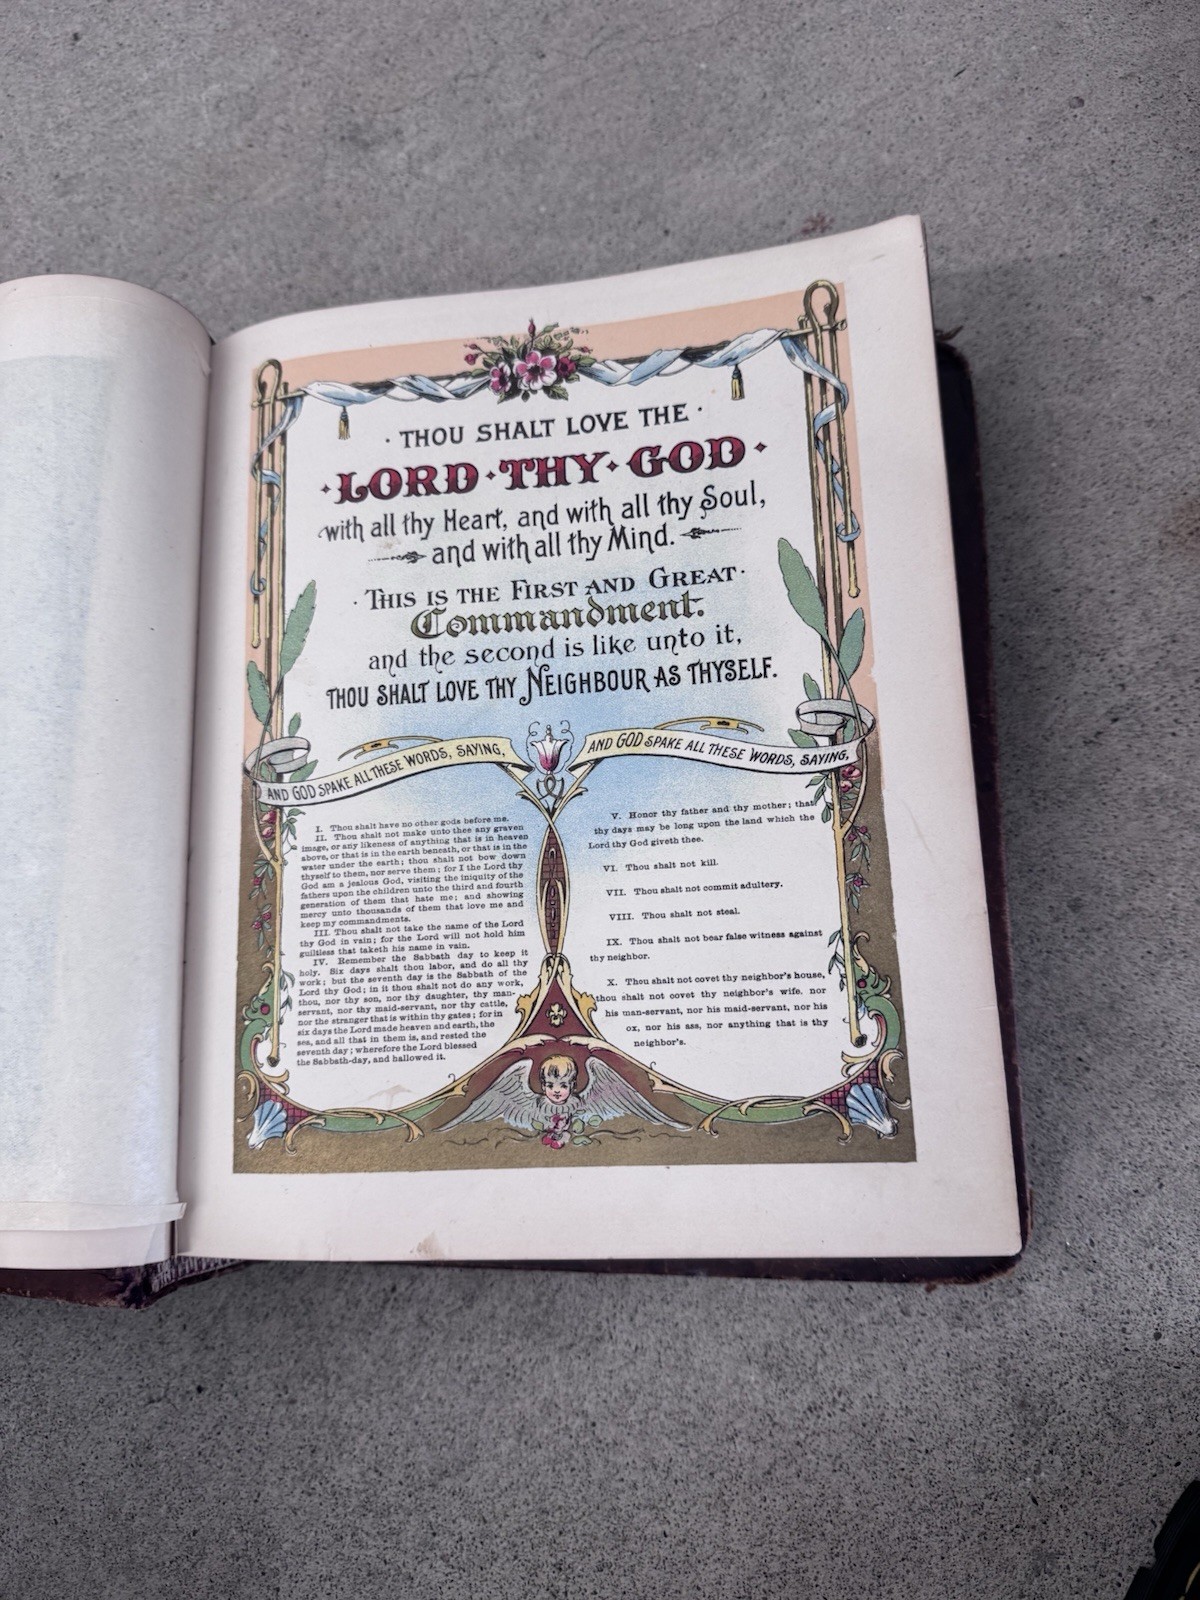 · THOU SHALT LOVE THE ·
· LORD · THY · GOD ·
with all thy Heart, and with all thy Soul,
and with all thy Mind.
· THIS IS THE FIRST AND GREAT ·
Commandment.
and the second is like unto it,
THOU SHALT LOVE THY NEIGHBOUR AS THYSELF.
AND GOD SPAKE ALL THESE WORDS, SAYING,
I. Thou shalt have no other gods before me.
II. Thou shalt not make unto thee any graven
image, or any likeness of anything that is in heaven
above, or that is in the earth beneath, or that is in the
water under the earth; thou shalt not bow down
thyself to them, nor serve them; for I the Lord thy
God am a jealous God, visiting the iniquity of the
fathers upon the children unto the third and fourth
generation of them that hate me; and showing
mercy unto thousands of them that love me and
keep my commandments.
III. Thou shalt not take the name of the Lord
thy God in vain; for the Lord will not hold him
guiltless that taketh his name in vain.
IV. Remember the Sabbath day to keep it
holy. Six days shalt thou labor, and do all thy
work; but the seventh day is the Sabbath of the
Lord thy God; in it thou shalt not do any work,
thou, nor thy son, nor thy daughter, thy man-
servant, nor thy maid-servant, nor thy cattle,
nor the stranger that is within thy gates; for in
six days the Lord made heaven and earth, the
sea, and all that in them is, and rested the
seventh day; wherefore the Lord blessed
the Sabbath-day, and hallowed it.
AND GOD SPAKE ALL THESE WORDS, SAYING,
V. Honor thy father and thy mother; that
thy days may be long upon the land which the
Lord thy God giveth thee.
VI. Thou shalt not kill.
VII. Thou shalt not commit adultery.
VIII. Thou shalt not steal.
IX. Thou shalt not bear false witness against
thy neighbor.
X. Thou shalt not covet thy neighbor's house,
thou shalt not covet thy neighbor's wife, nor
his man-servant, nor his maid-servant, nor his
ox, nor his ass, nor anything that is thy
neighbor's.